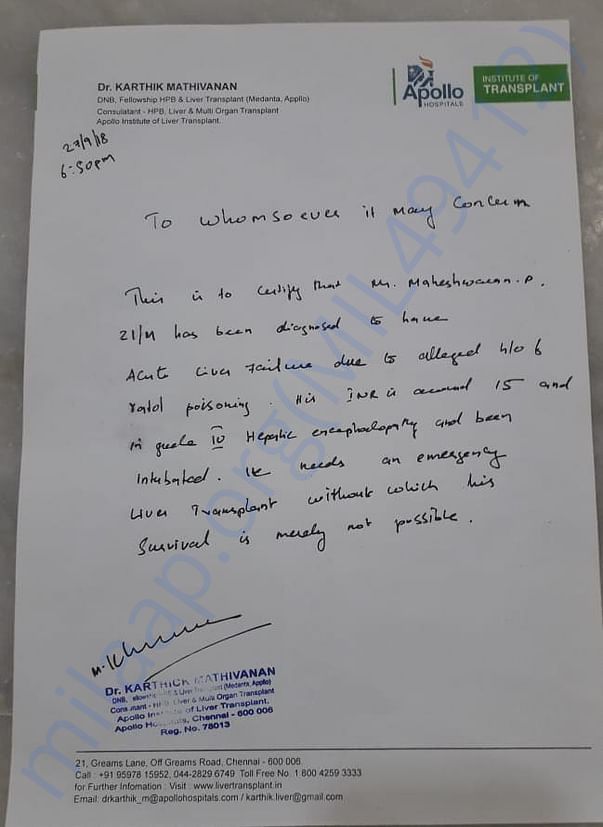 Dr. KARTHIK MATHIVANAN
DNB, Fellowship HPB & Liver Transplant (Medanta, Appllo)
Consulatant - HPB, Liver & Multi Organ Transplant
Apollo Institute of Liver Transplant.
Apollo
HOSPITALS
INSTITUTE OF
TRANSPLANT
27/9/18
6:50pm
To whomsoever it may Concern
This is to certify that Mr. Maheshwaran.P.
21/M has been diagnosed to have
Acute Liver Failure due to alleged h/o
ratol poisoning. His INR is around 15 and
in grade IV Hepatic encephalopathy and been
intubated. He needs an emergency
Liver Transplant without which his
Survival is merely not possible.
Dr. KARTHICK MATHIVANAN
DNB, Fellowship HPB & Liver Transplant (Medanta, Apollo)
Consultant - HPB, Liver & Multi Organ Transplant
Apollo Institute of Liver Transplant.
Apollo Hospitals, Chennai - 600 006
Reg. No. 78013
21, Greams Lane, Off Greams Road, Chennai - 600 006.
Call : +91 95978 15952, 044-2829 6749 Toll Free No. 1 800 4259 3333
for Further Infomation : Visit : www.livertransplant.in
Email: drkarthik_m@apollohospitals.com / karthik.liver@gmail.com
milaap.org(MIL49412)